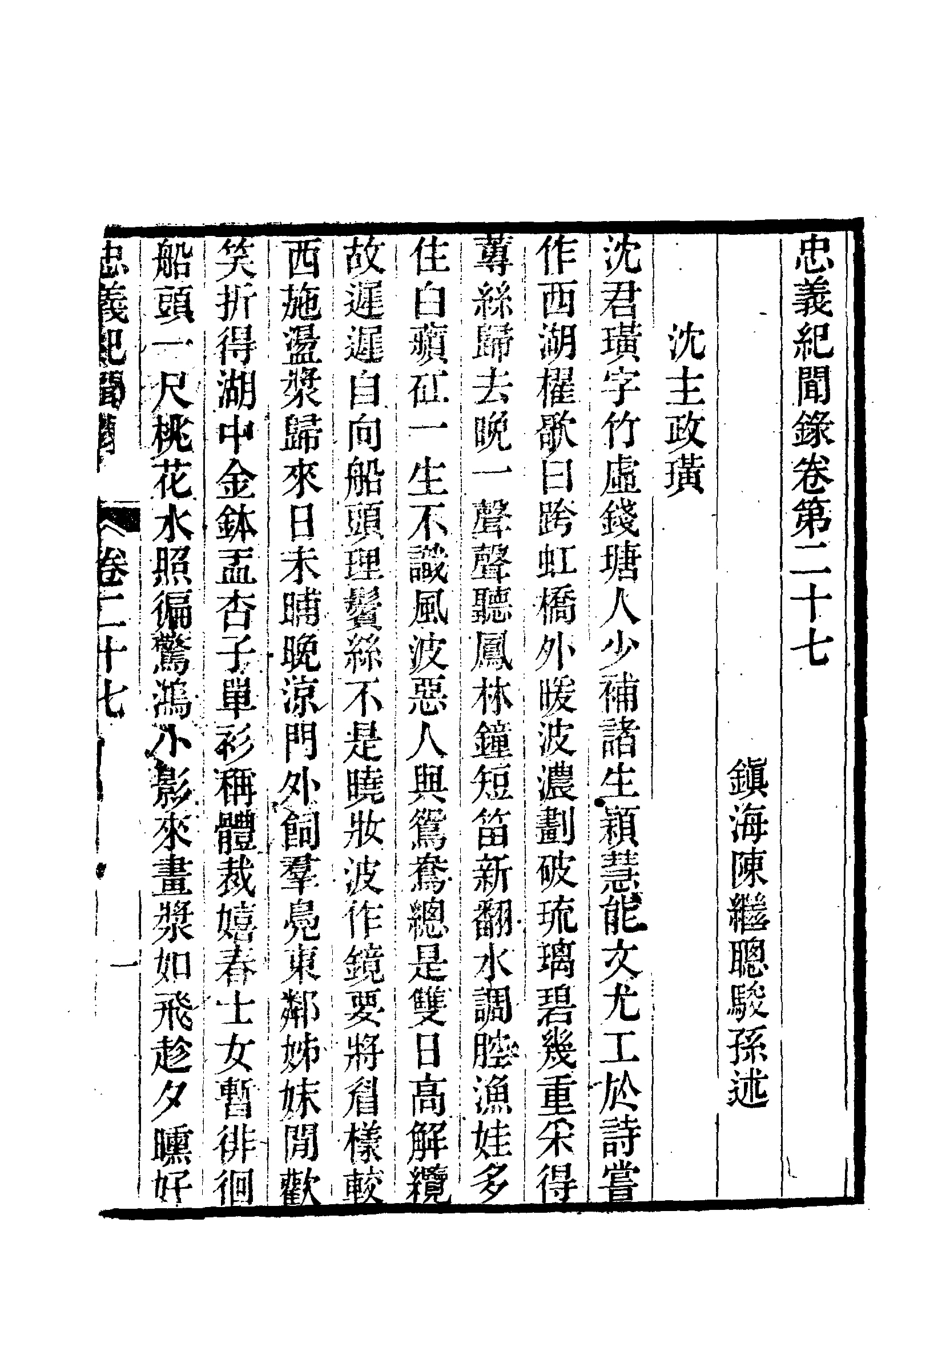 忠義紀聞錄卷第二十七
鎭海陳繼聰駿孫述
沈主政璜
沈君璜字竹虛錢塘人少補諸生穎慧能文尤工於詩嘗
作西湖櫂歌曰跨虹橋外暖波濃劃破琉璃碧幾重采得
蓴絲歸去晚一聲聲聽鳳林鐘短笛新翻水調腔漁娃多
住白蘋矼一生不識風波惡人與鴛鴦總是雙日高解纜
故遲遲自向船頭理鬢絲不是曉妝波作鏡要將眉樣較
西施盪槳歸來日未晡晚涼門外飼羣鳧東鄰姊妹閒歡
笑折得湖中金鉢盂杏子單衫稱體裁嬉春士女暫徘徊
船頭一尺桃花水照徧驚鴻小影來畫槳如飛趁夕曛好
忠義紀聞錄 卷二十七 一